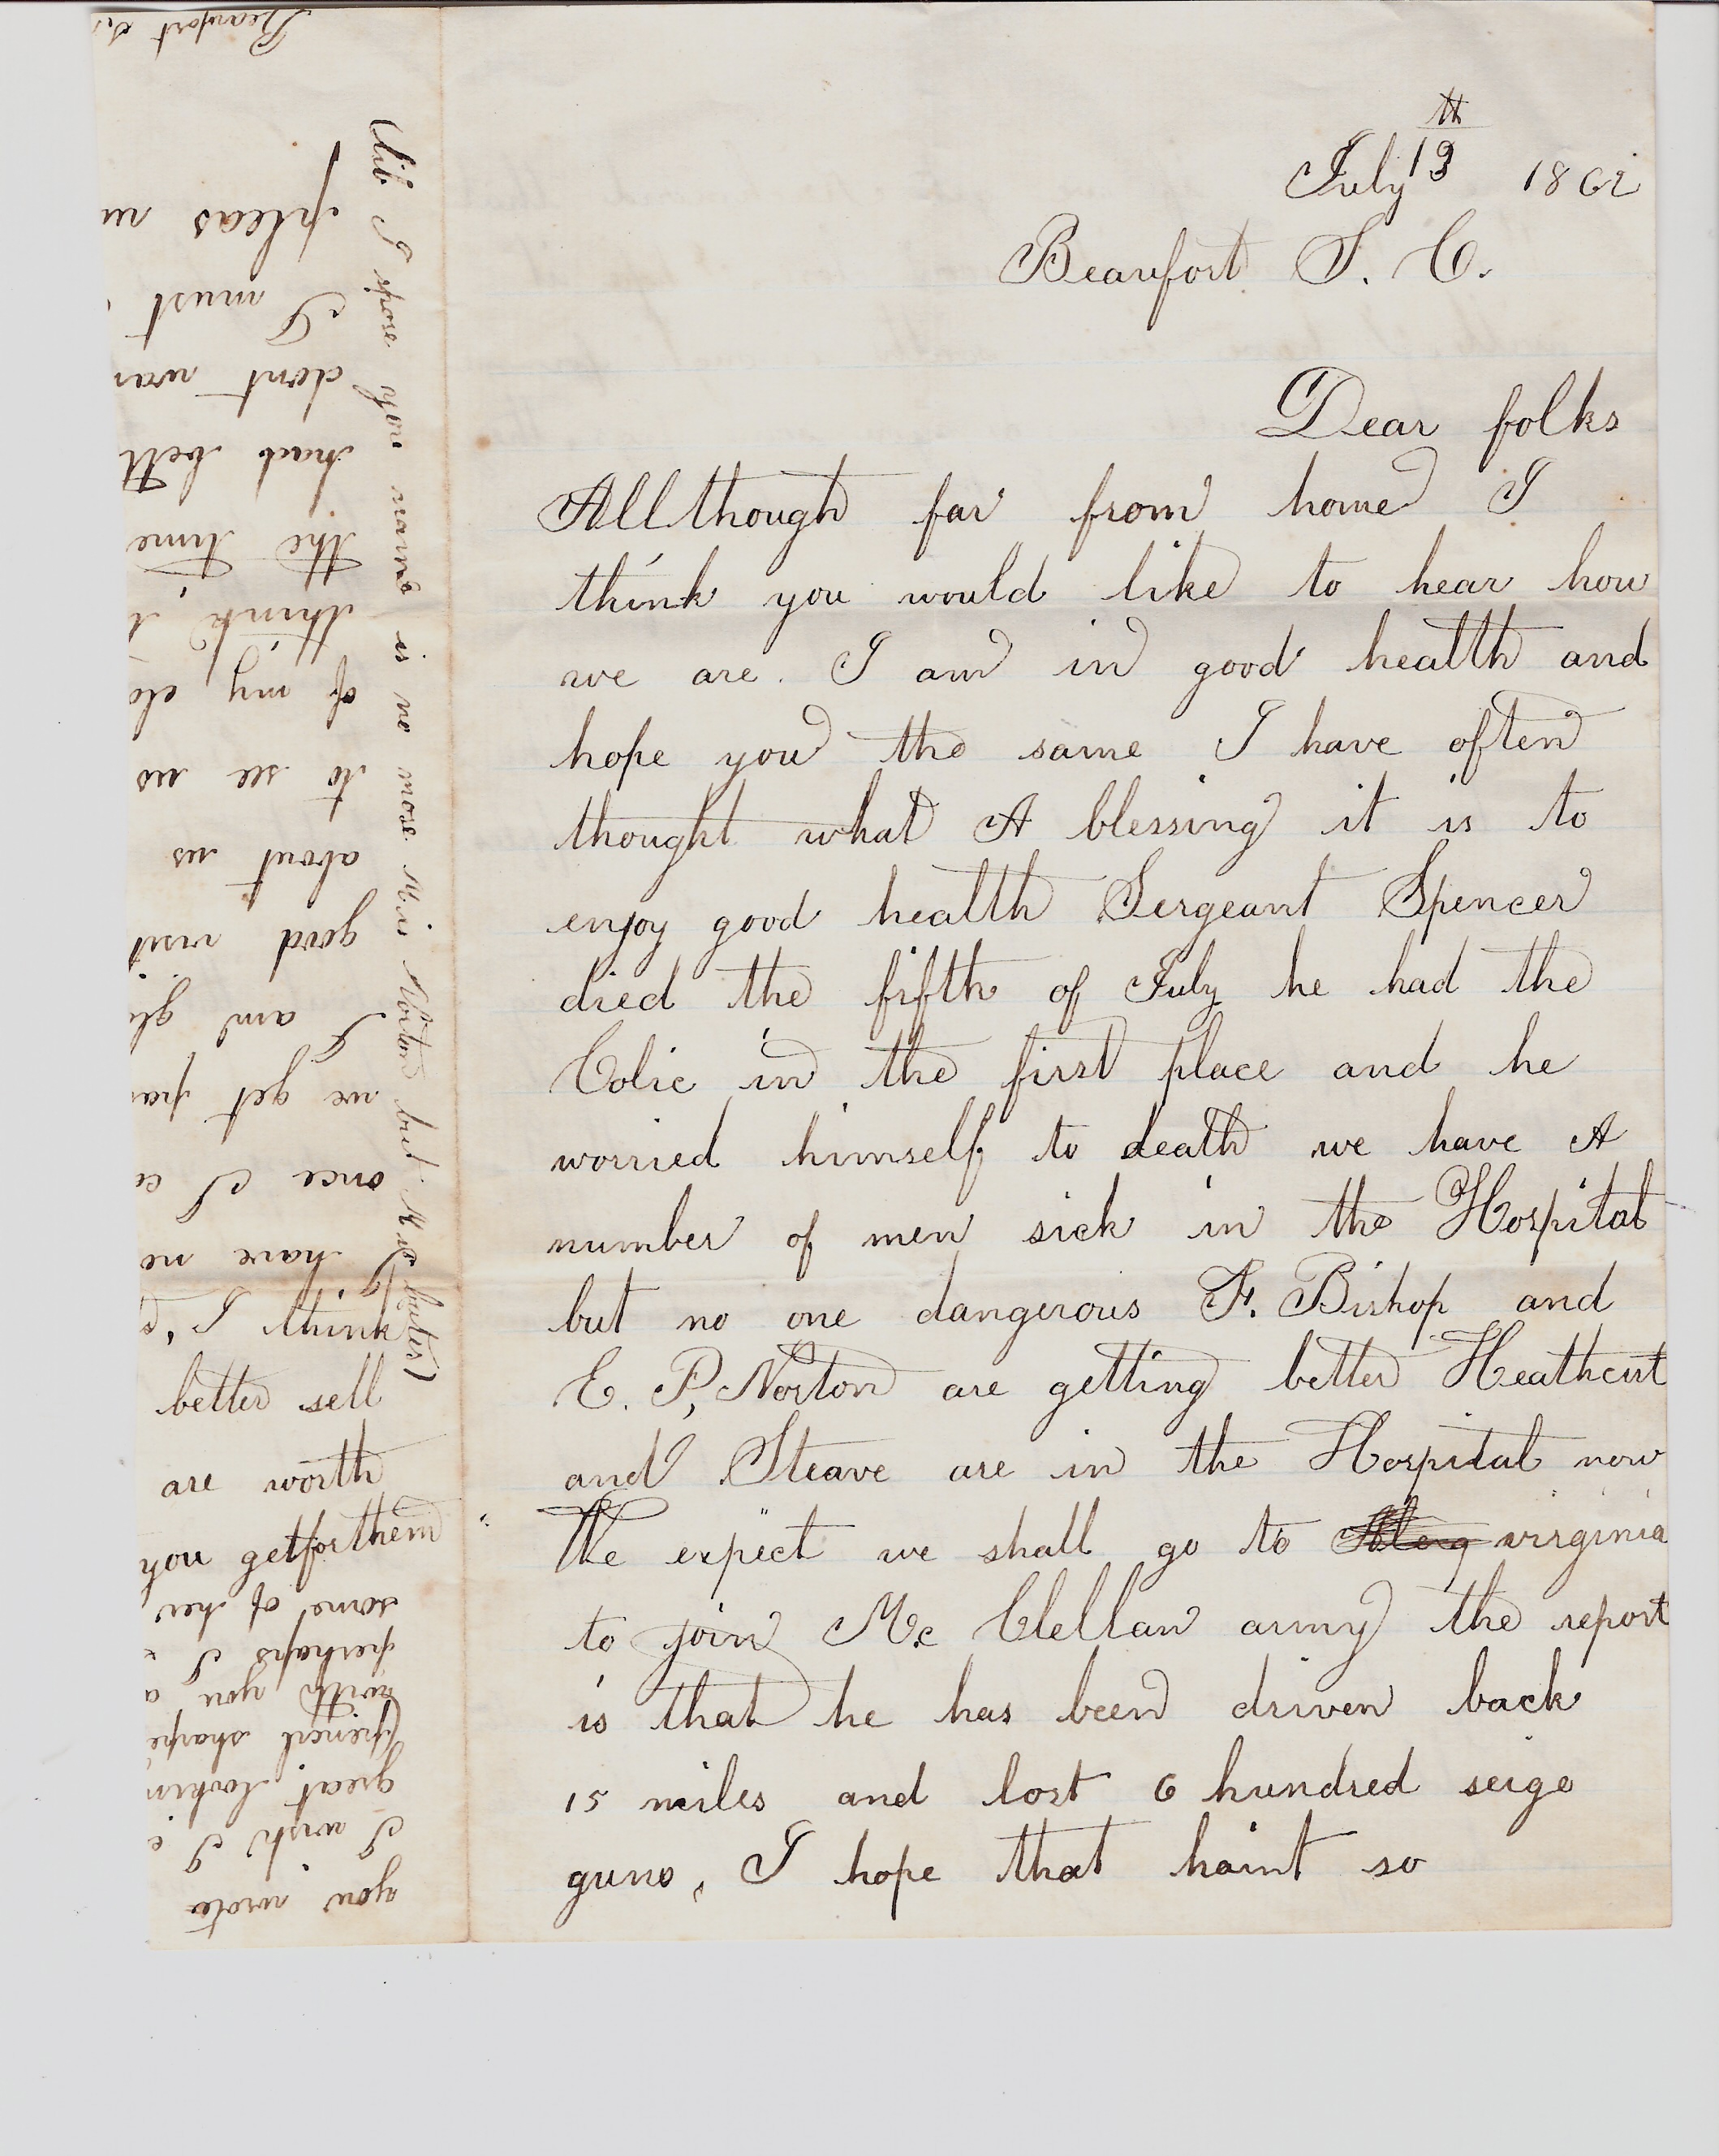 th
July 13 1862
Beaufort S. C.
Dear folks
Allthough far from home I
think you would like to hear how
we are. I am in good health and
hope you the same I have often
thought what A blessing it is to
enjoy good health Sergeant Spencer
died the fifth of July he had the
Colic in the first place and he
worried himself to death we have A
number of men sick in the Hospital
but no one dangerous F. Bishop and
E. P. Norton are getting better Heathcut
and Steave are in the Hospital now
We expect we shall go to virginia
to join Mc Clellan army the report
is that he has been driven back
15 miles and lost 6 hundred seige
guns, I hope that haint so
(lib I spose you name is no more Mis Norton but Mis bates)
you wrote
I wish I
great lookin
pencil sharpe
with you a
perhaps I
some of her
you get for them
are worth
better sell
I think
have no
once I
we get pa
I am gl
good visit
about us
to see us
of my
think
the time
had bett
dont wan
I must
pleas
Beaufort